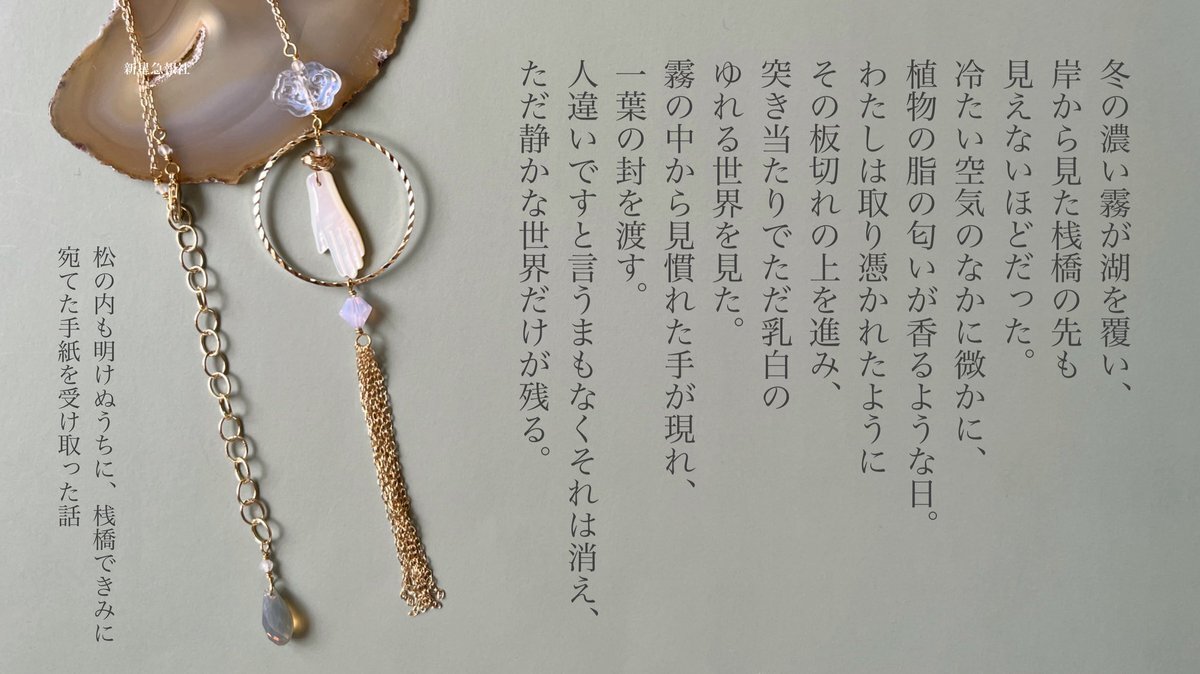 冬の濃い霧が湖を覆い、
岸から見た桟橋の先も
見えないほどだった。
冷たい空気のなかに微かに、
植物の脂の匂いが香るような日。
わたしは取り憑かれたように
その板切れの上を進み、
突き当たりでただ乳白の
ゆれる世界を見た。
霧の中から見慣れた手が現れ、
一葉の封を渡す。
人違いですと言うまもなくそれは消え、
ただ静かな世界だけが残る。
松の内も明けぬうちに、桟橋できみに
宛てた手紙を受け取った話